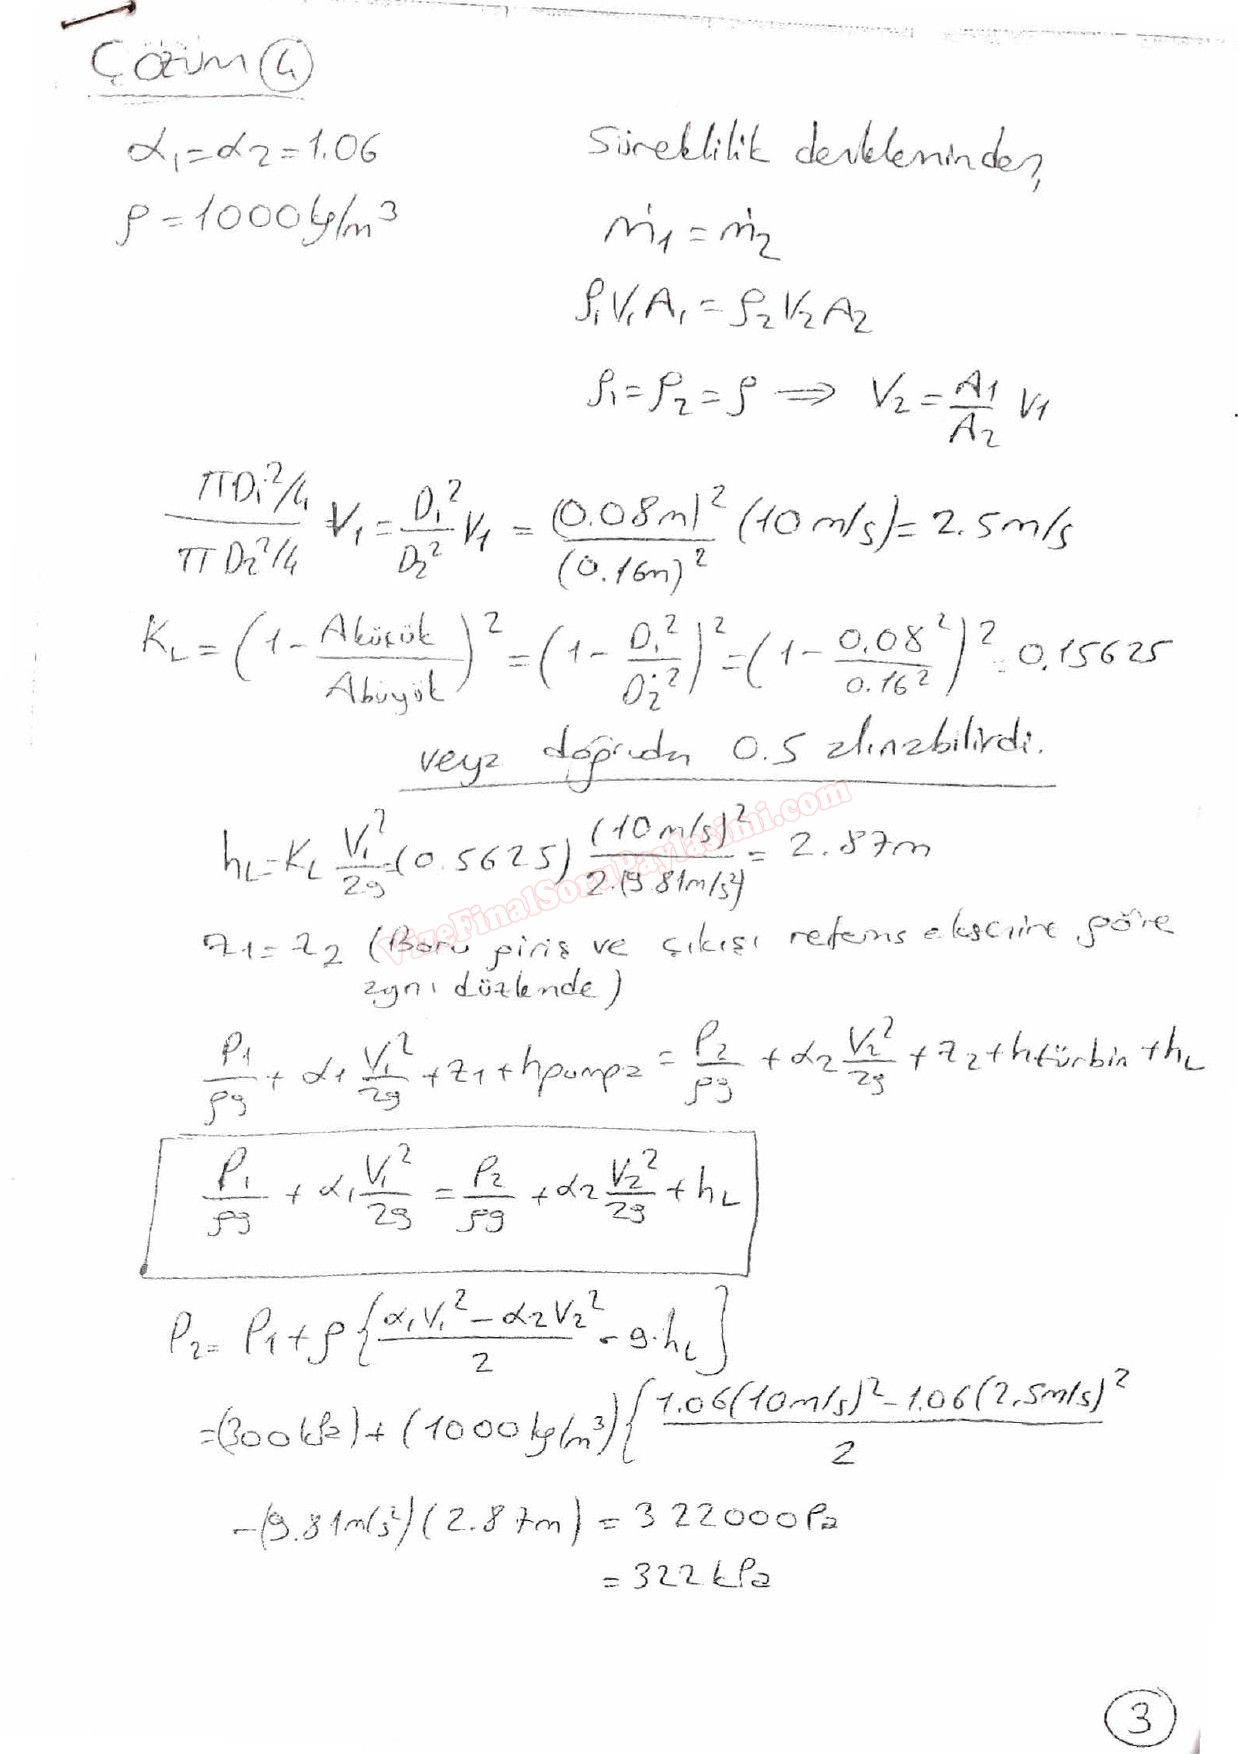 Çözüm (4)
α₁=α₂=1.06
ρ=1000kg/m³
Süreklilik denkleminden,
ṁ₁=ṁ₂
ρ₁V₁A₁=ρ₂V₂A₂
ρ₁=ρ₂=ρ ⇒ V₂=A₁/A₂ V₁
(πD₁²/4)/(πD₂²/4) V₁ = D₁²/D₂² V₁ = (0.08m)²/(0.16m)² (10m/s)=2.5m/s
K_L=(1-Aküçük/Abüyük)²=(1-D₁²/D₂²)²=(1-0.08²/0.16²)²=0.15625
veya doğrudan 0.5 alınabilirdi.
h_L=K_L V₁²/2g=(0.5625)(10m/s)²/2.(9.81m/s²)=2.87m
z₁=z₂ (Boru giriş ve çıkışı referns eksenine göre
aynı düzlende)
P₁/ρg+α₁V₁²/2g+z₁+hpompa=P₂/ρg+α₂V₂²/2g+z₂+htürbin+h_L
P₁/ρg+α₁V₁²/2g=P₂/ρg+α₂V₂²/2g+h_L
P₂=P₁+ρ{(α₁V₁²-α₂V₂²)/2-g.h_L}
=(300kPa)+(1000kg/m³){(1.06(10m/s)²-1.06(2,5m/s)²)/2
-(9.81m/s²)(2.87m)=322000Pa
=322kPa
3
VizeFinalSoruPaylasimi.com